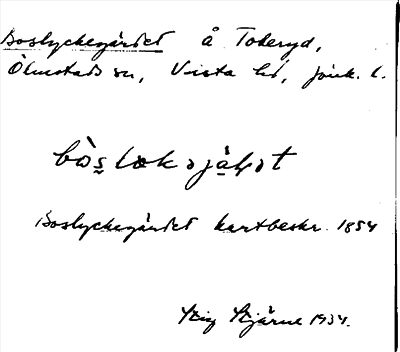 Boslyckegärdet å Toberyd,
Ölmstads sn, Vista hd, Jönk. l.
Boslyckegärdet kartbeskr. 1854
Stig Stjärne 1934.